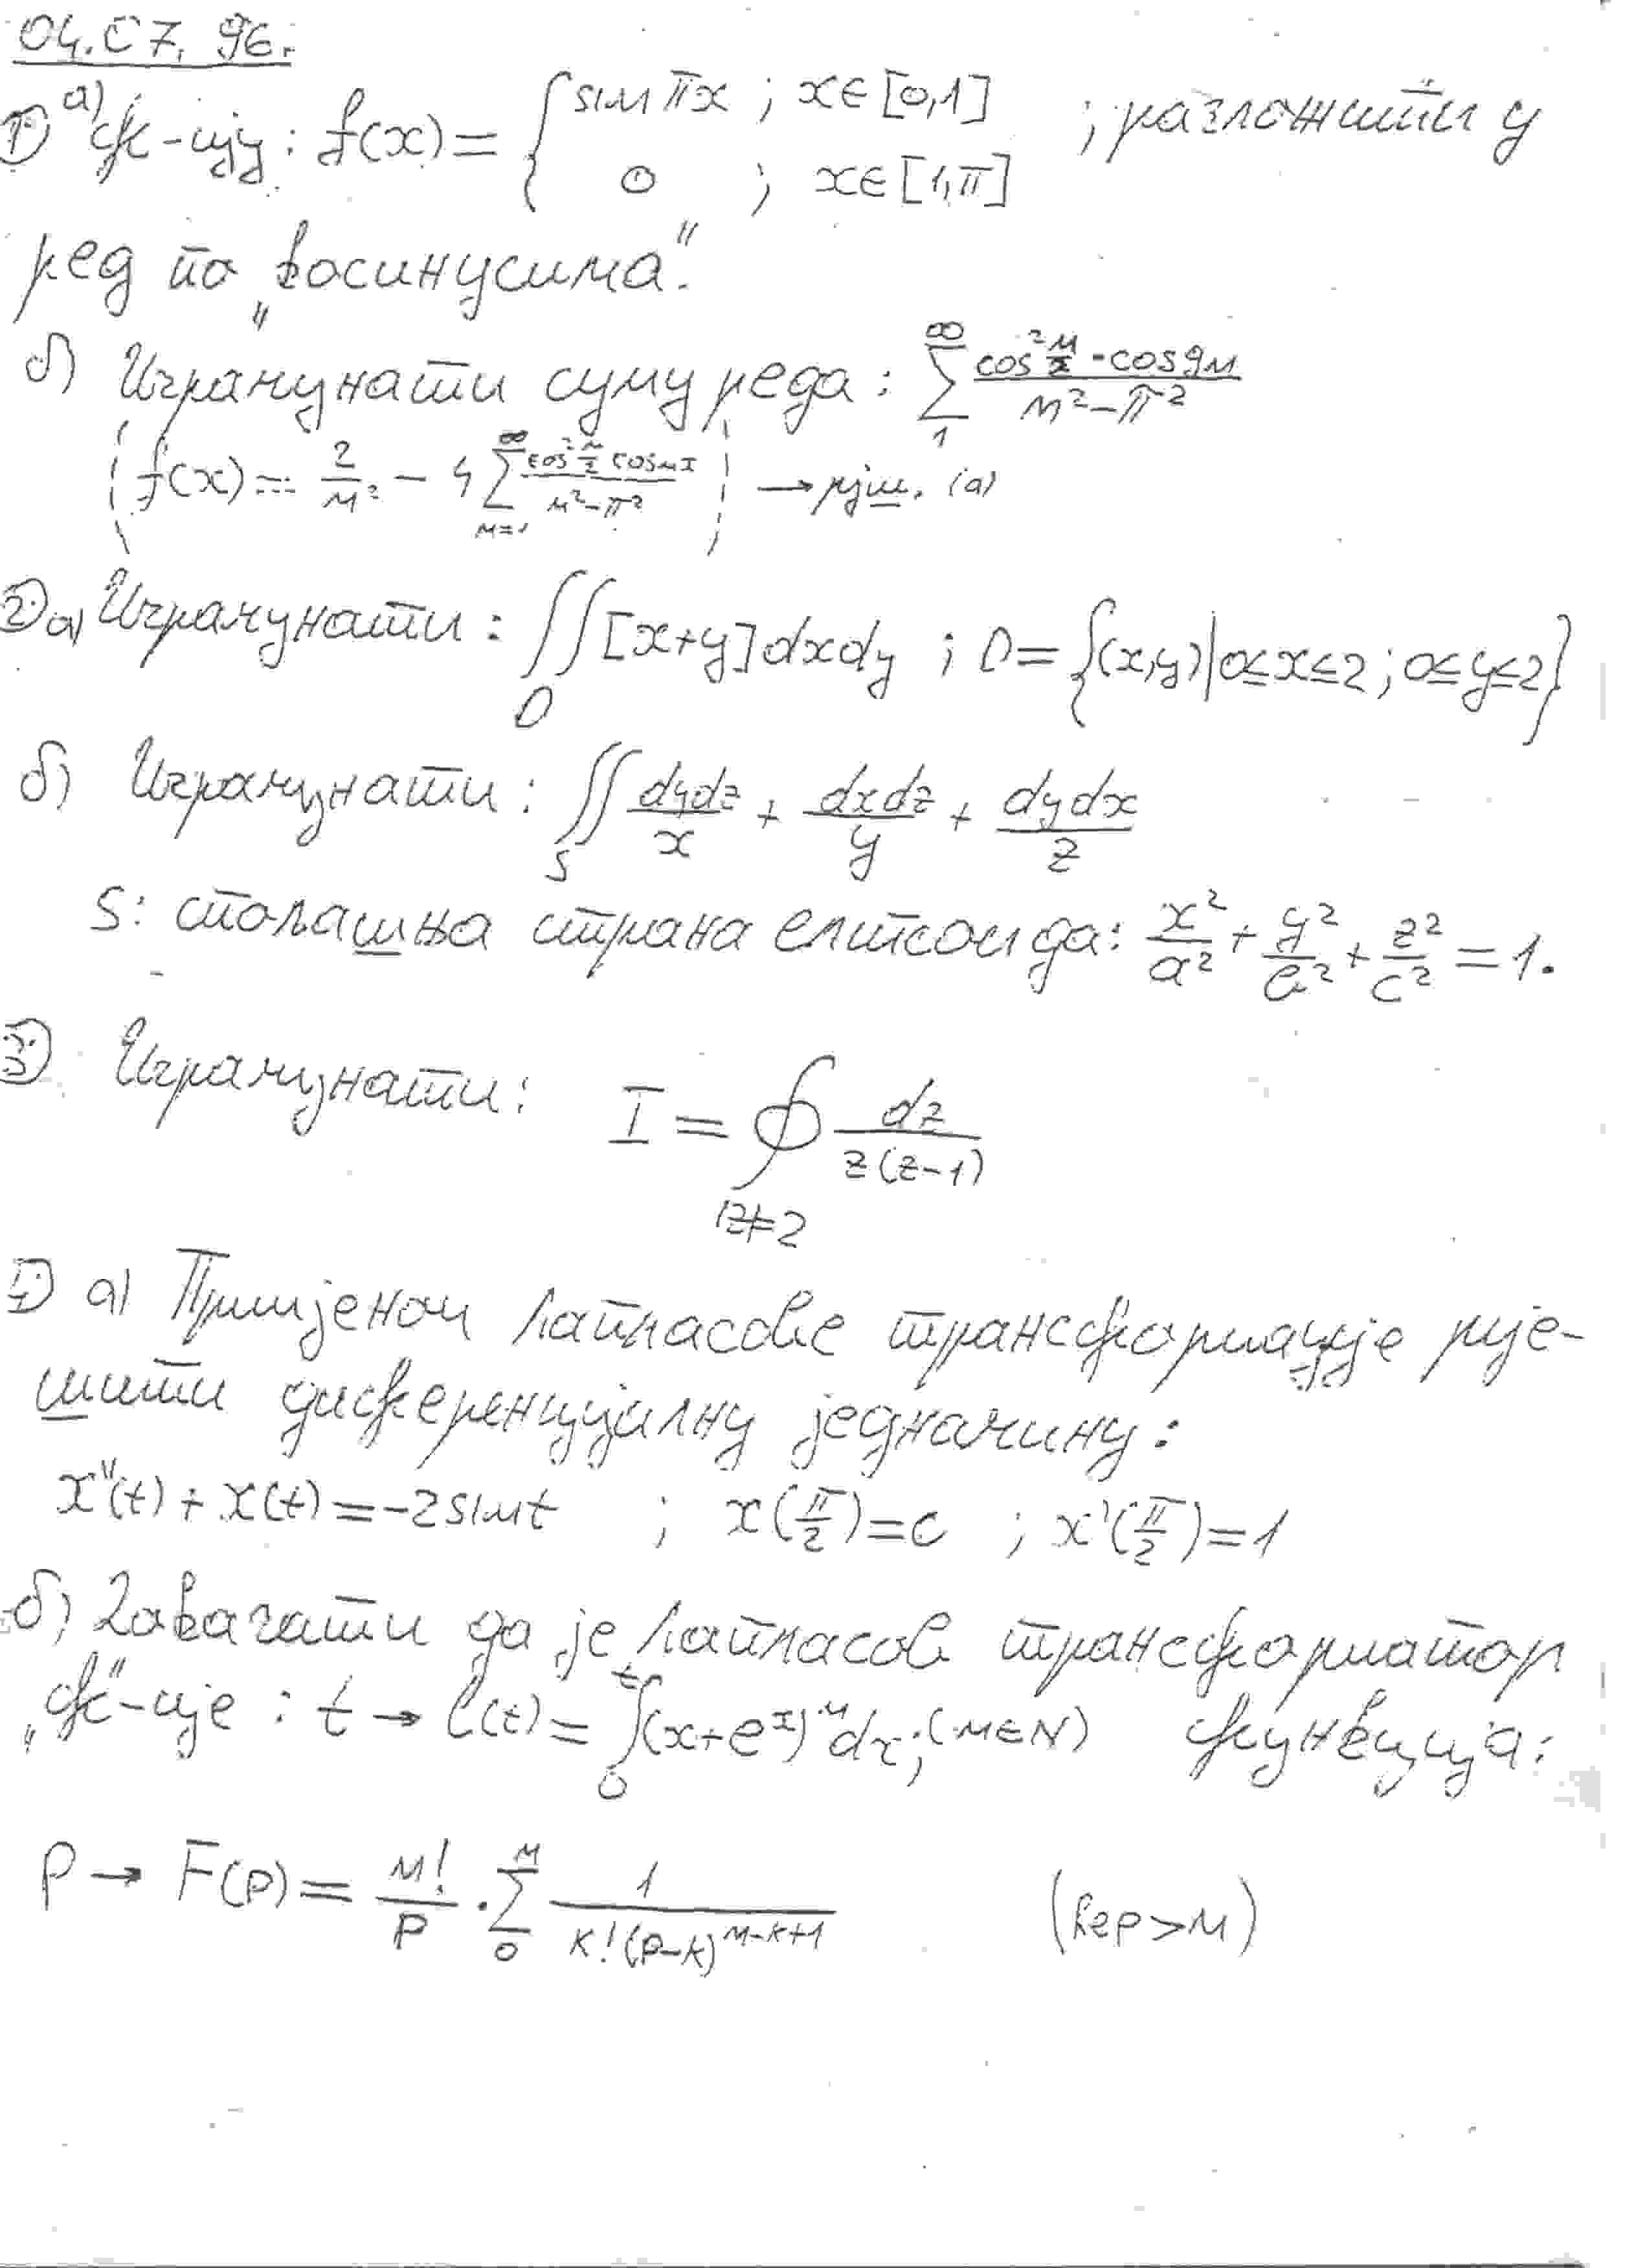 04.07.96.
1. а) ф-цију: f(x) = { sin πx ; x∈[0,1] ; разложити у
0 ; x∈[1,π]
ред по „косинусима".
б) Израчунати суму реда: ∑_1^∞ (cos² n/2 · cos 9n)/(n²-π²)
( f(x) = ... 2/π² - 4 ∑_{n=1}^∞ (cos² n/2 cos nx)/(n²-π²) ) → рјш. (а)
2. а) Израчунати: ∬_D [x+y]dxdy ; D = {(x,y)|0≤x≤2; 0≤y≤2}
б) Израчунати: ∬_S dydz/x + dxdz/y + dydx/z
S: спољашња страна елипсоида: x²/a² + y²/b² + z²/c² = 1.
3. Израчунати: I = ∮_{|z|=2} dz/(z(z-1))
4. а) Примјеном Лапласове трансформације рје-
шити диференцијалну једначину:
x''(t) + x(t) = -2sin t ; x(π/2) = 0 ; x'(π/2) = 1
б) Доказати да је Лапласов трансформатор
„ф"-ције: t → l(t) = ∫_0^t (x+e^x)^n dx; (n∈N) функција:
p → F(p) = n!/p · ∑_0^n 1/(k!(p-k)^{n-k+1}) (Rep>n)